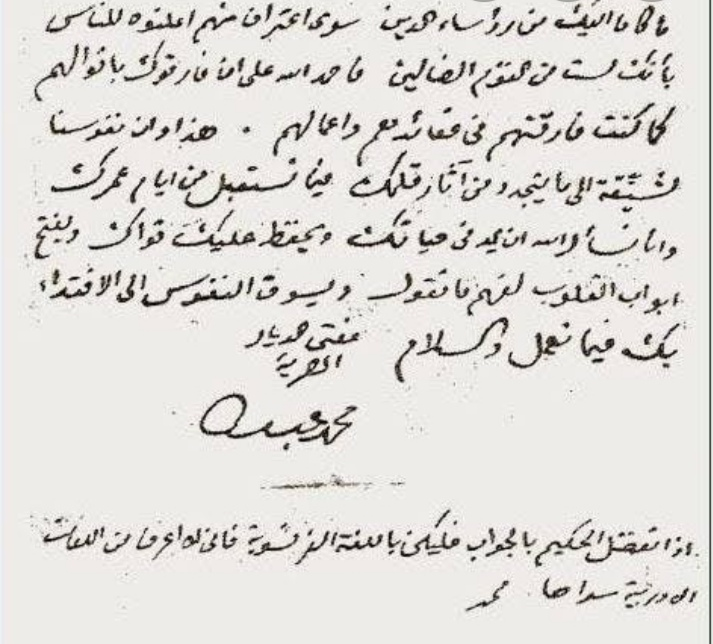 ما كان اليك من رؤساء الدين سوى اعتراف منهم اعلنوه للناس
بأنك لست من القوم الضالين فاحمد الله على ان فارقوك باقوالهم
كما كنت فارقتهم في عقائدهم واعمالهم . هذا وان نفوسنا
لشيّقة الى ما يتجدد من آثار قلمك فيما تستقبل من ايام عمرك
وانا نسأل الله ان يمد في حياتك ويحفظ عليك قواك ويفتح
ابواب القلوب لفهم ما تقول ويسوق النفوس الى الاقتداء
بك فيما تعمل والسلام
مفتي الديار
المصرية
محمد عبده
اذا تفضل الحكيم بالجواب فليكن باللغة الفرنسوية فاني لا اعرف من اللغات
الاوربية سواها محمد